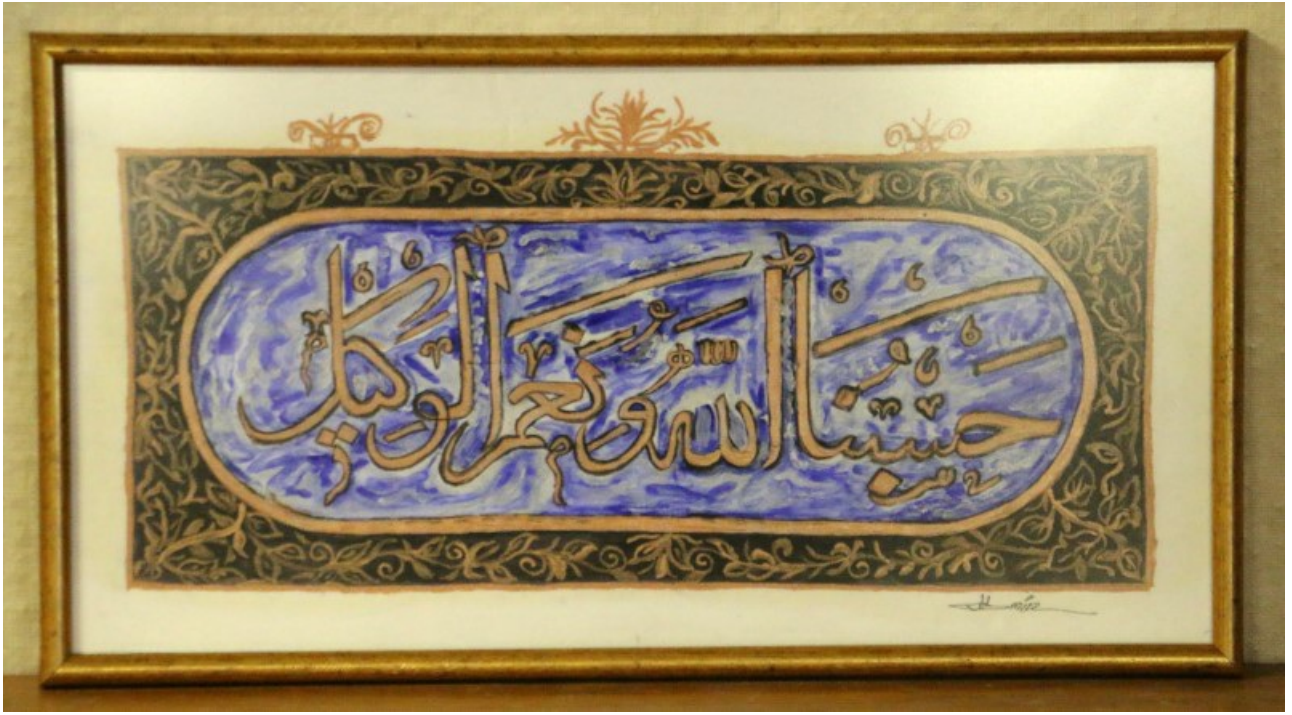 حَسْبُنَا اللّٰهُ وَنِعْمَ الْوَكِيلُ